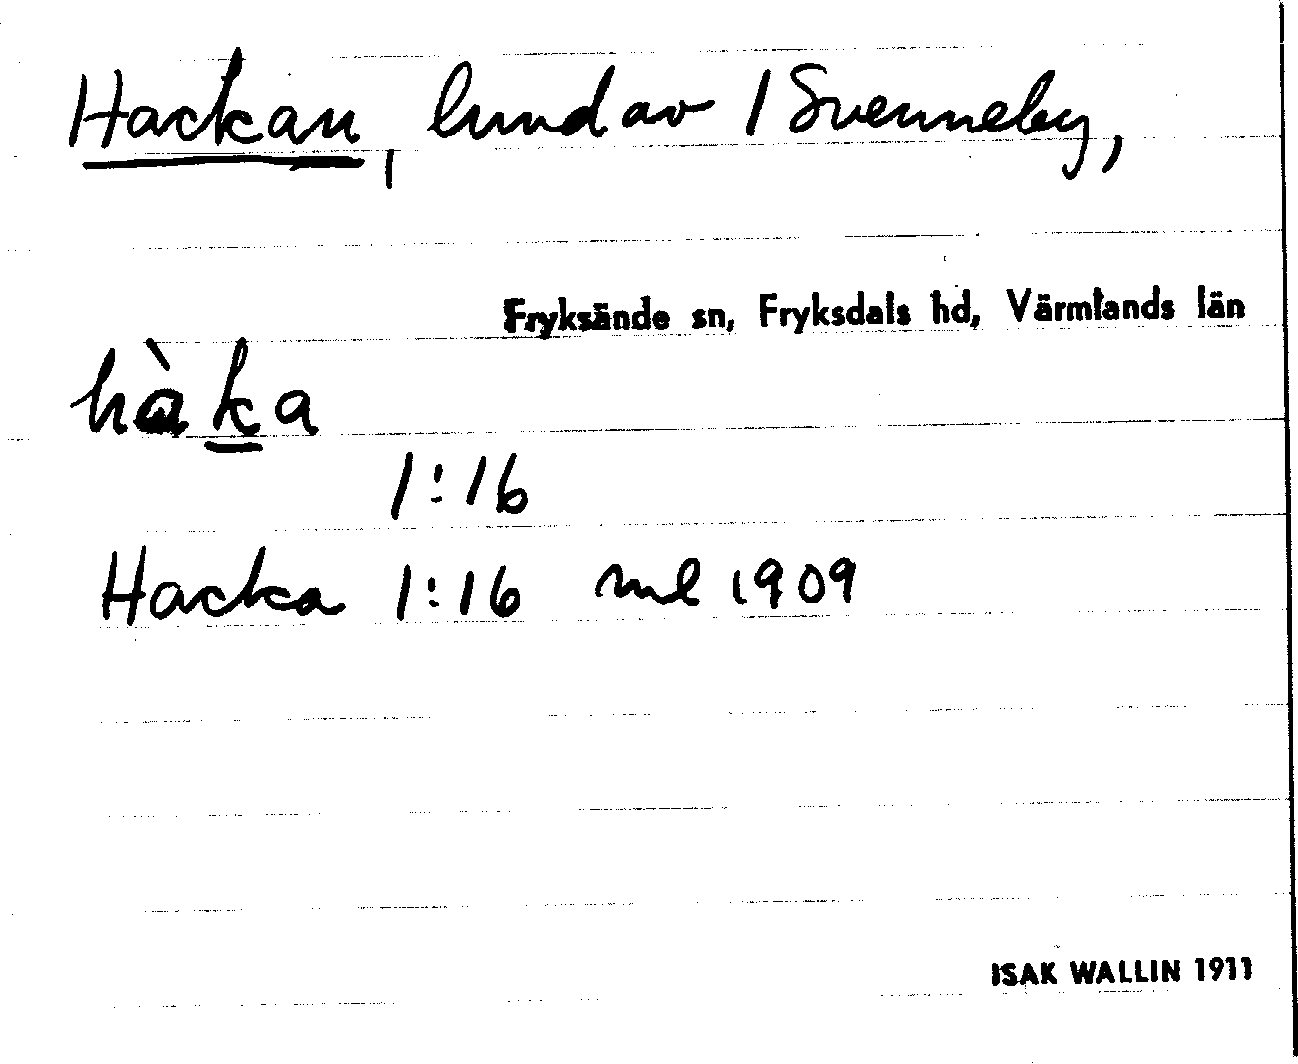 Hackan, lund av 1 Svenneby,
Fryksände sn, Fryksdals hd, Värmlands län
hàka
1:16
Hacka 1:16 ml 1909
ISAK WALLIN 1911